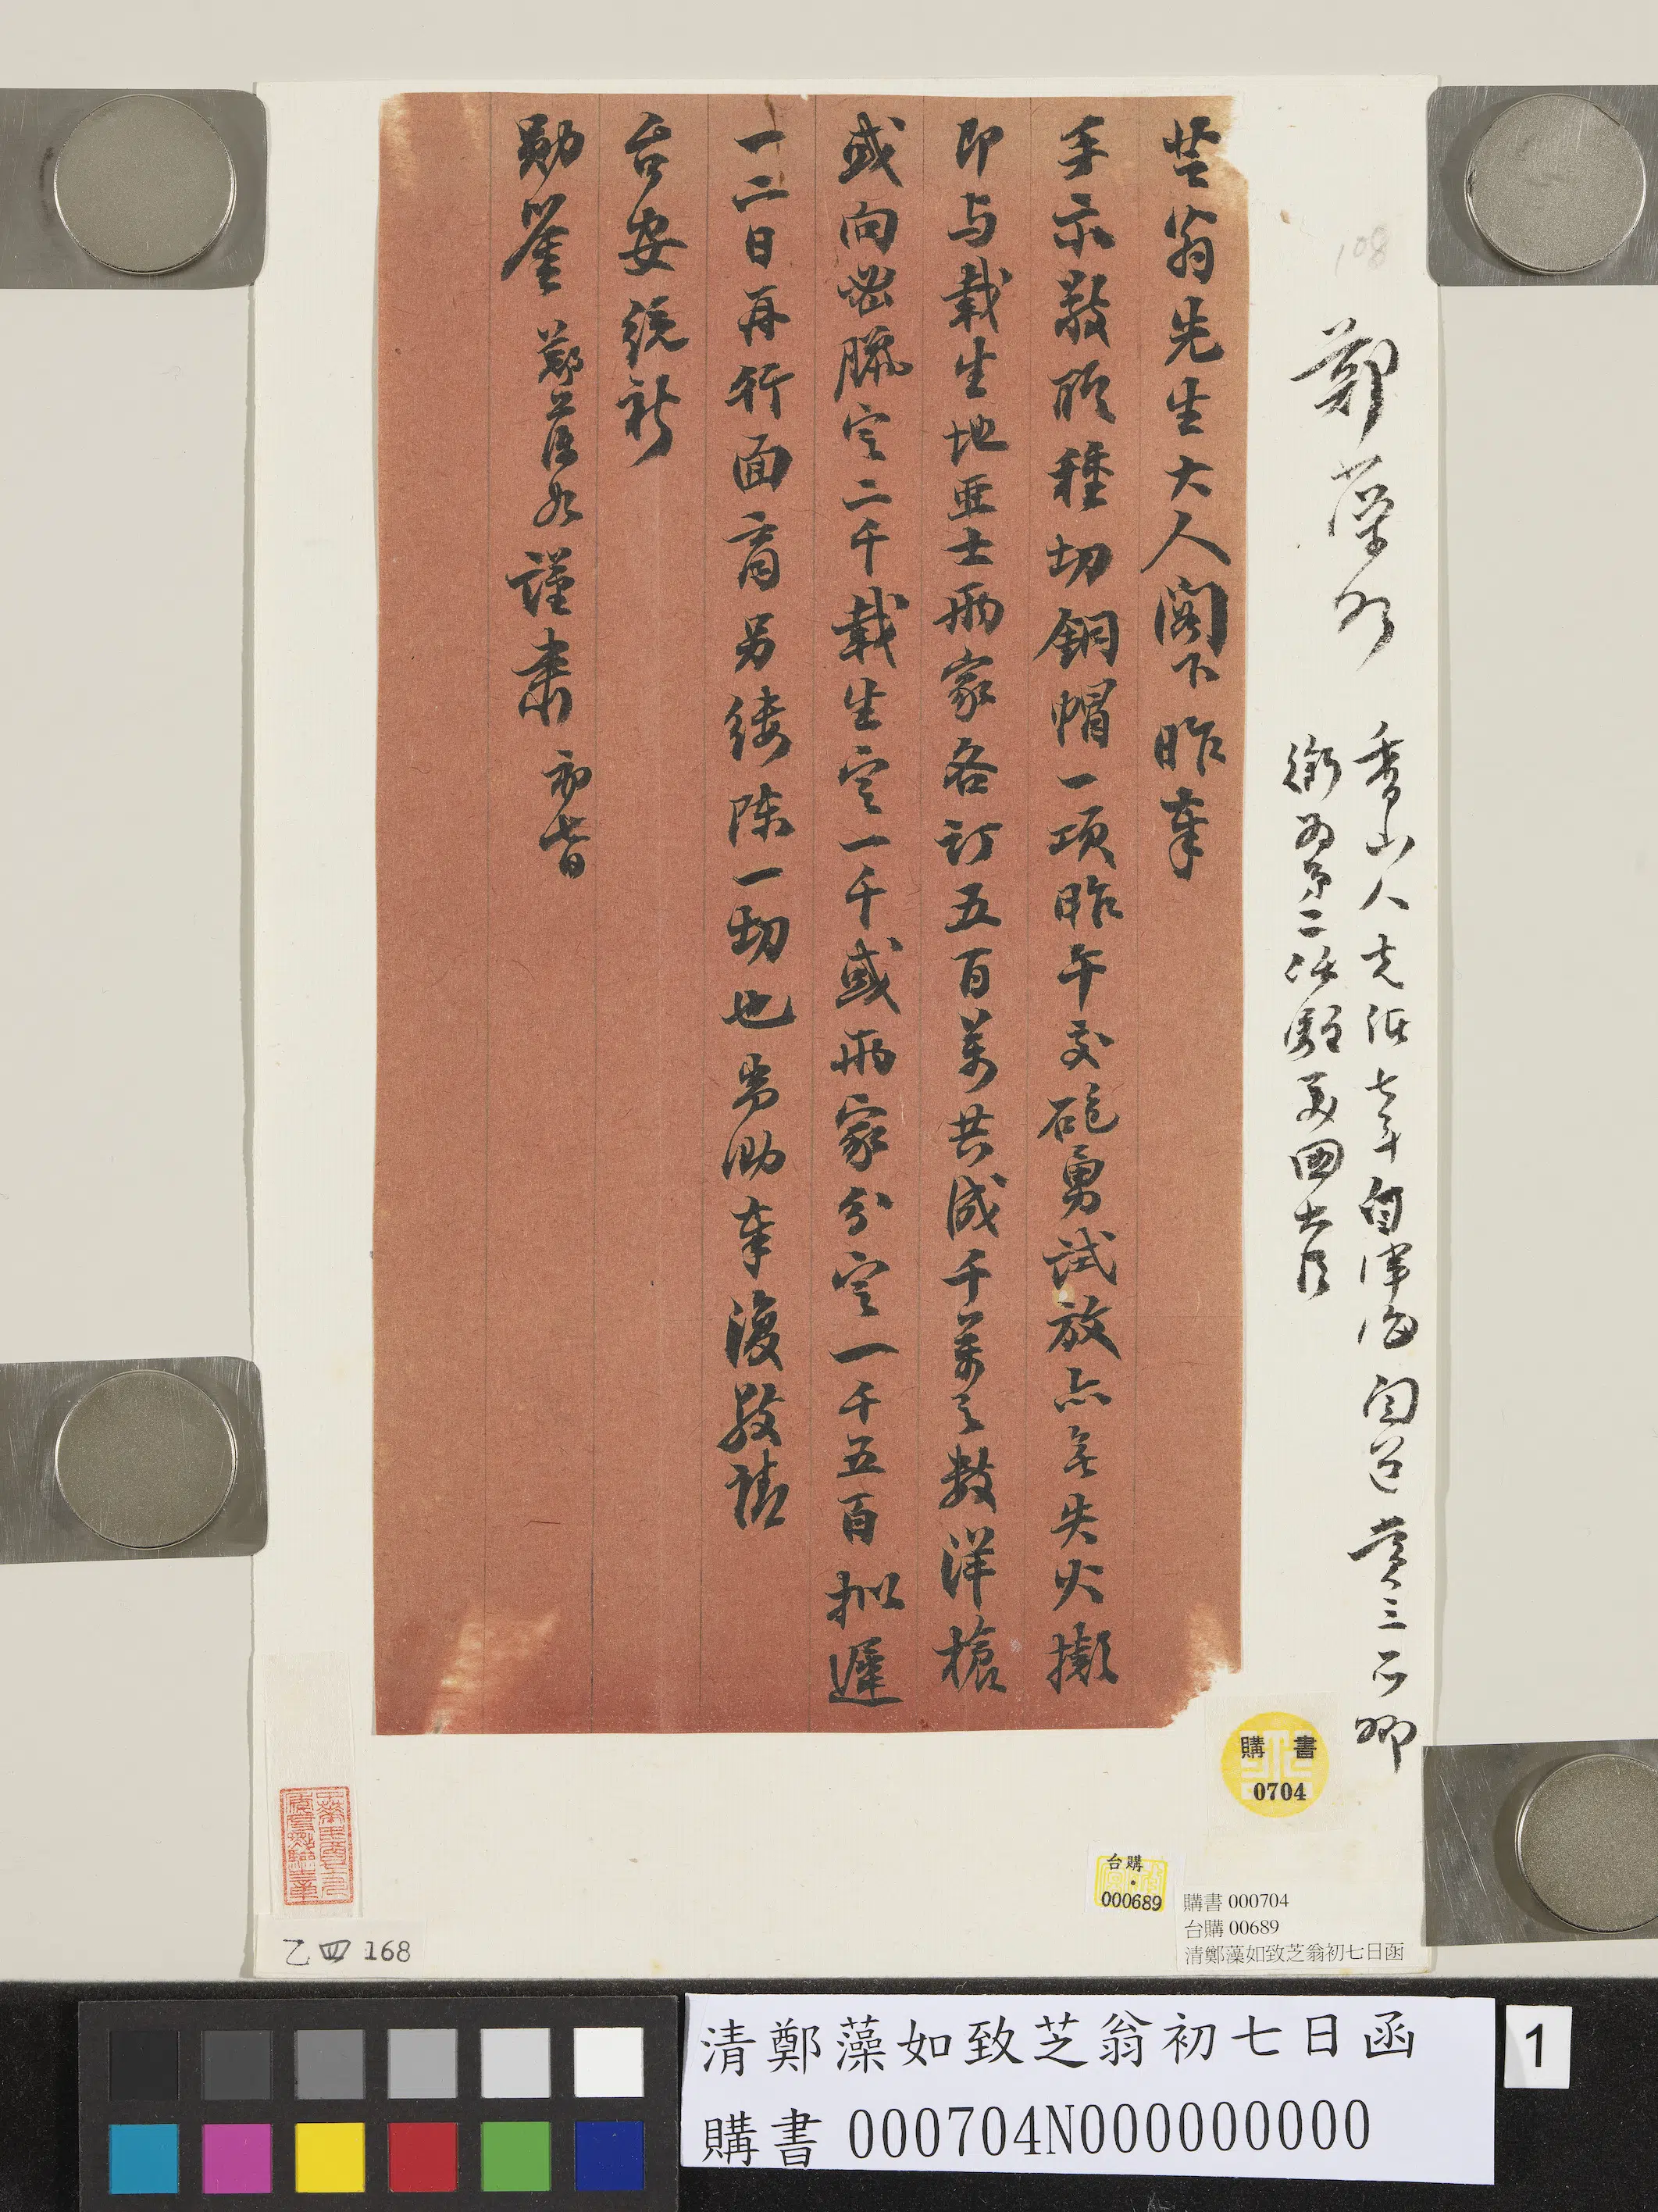 108
鄭藻如
香山人光緒七年自津海關道賞三品卿
銜為第二次駐美國大臣
芝翁先生大人閣下昨奉
手示敬聆種切銅帽一項昨午交砲勇試放亦無失火擬
即与載生地亞士兩家各訂五百萬共成千萬之數洋槍
或向密臘定二千載生定一千或兩家分定一千五百拟遲
一二日再行面商另縷陳一切也耑泐奉復敬請
台安統祈
勛鑒 鄭藻如謹肅 初七日
購書
0704
台購
000689
購書 000704
台購 00689
清鄭藻如致芝翁初七日函
乙四 168
清鄭藻如致芝翁初七日函
購書 000704N000000000
1